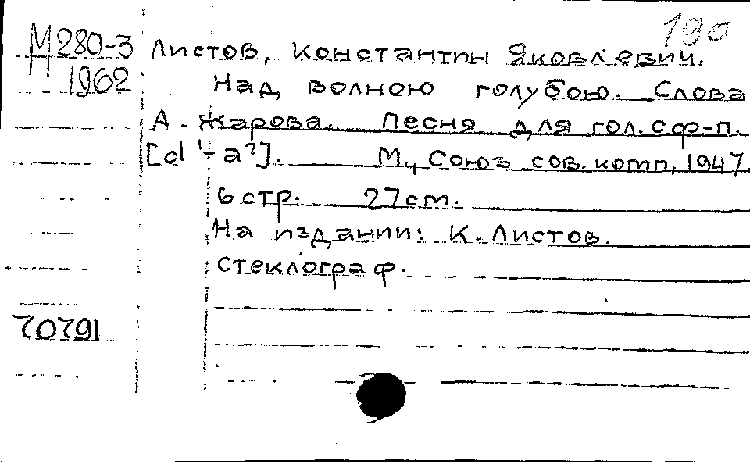 190
М280-3 Листов, Константин Яковлевич.
1962 Над волною голубою. Слова
А. Жарова. Песня для гол. с ф-п.
[d¹-a²]. М., Союз сов. комп., 1947.
6 стр. 27 cm.
На издании: К. Листов.
Стеклограф.
70791